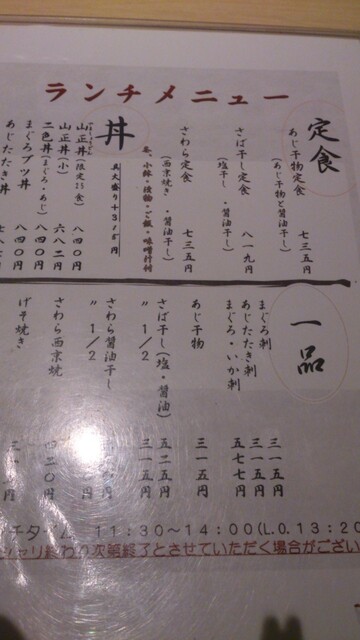 ランチメニュー
定食
あじ干物定食 七三五円
(あじ干物と醤油干し)
さば干し定食 八一九円
(塩干し・醤油干し)
さわら定食 七三五円
(西京焼き・醤油干し)
丼
具大盛り+315円
山正丼(限定25食) 八四〇円
山正丼(小) 六八二円
二色丼(まぐろ・あじ) 八四〇円
まぐろブツ丼 八四〇円
あじたたき丼
一品
まぐろ刺 三一五円
あじたたき刺 三一五円
まぐろ・いか刺 五七七円
あじ干物 三一五円
さば干し(塩・醤油) 五二五円
〃 1/2 三一五円
さわら醤油干し
〃 1/2
さわら西京焼 四二〇円
げそ焼き
11:30～14:00(L.O.13:20
シャリ終わり次第終了とさせていただく場合がござい